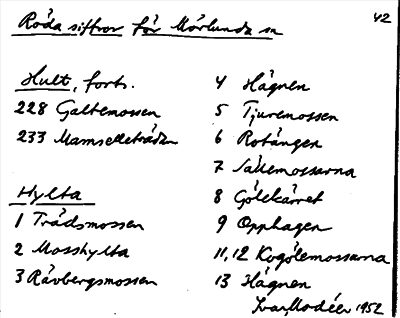 Röda siffror för Mörlunda sn
42
Hult, forts.
228 Galtemossen
233 Mamselleträdan
Hylta
1 Trädsmossen
2 Mosshylta
3 Rävbergsmossen
4 Hägnen
5 Tjuremossen
6 Rotängen
7 Sällemossarna
8 Gölekärret
9 Opphagen
11, 12 Kogölemossarna
13 Hägnen
Ivar Modéer 1952